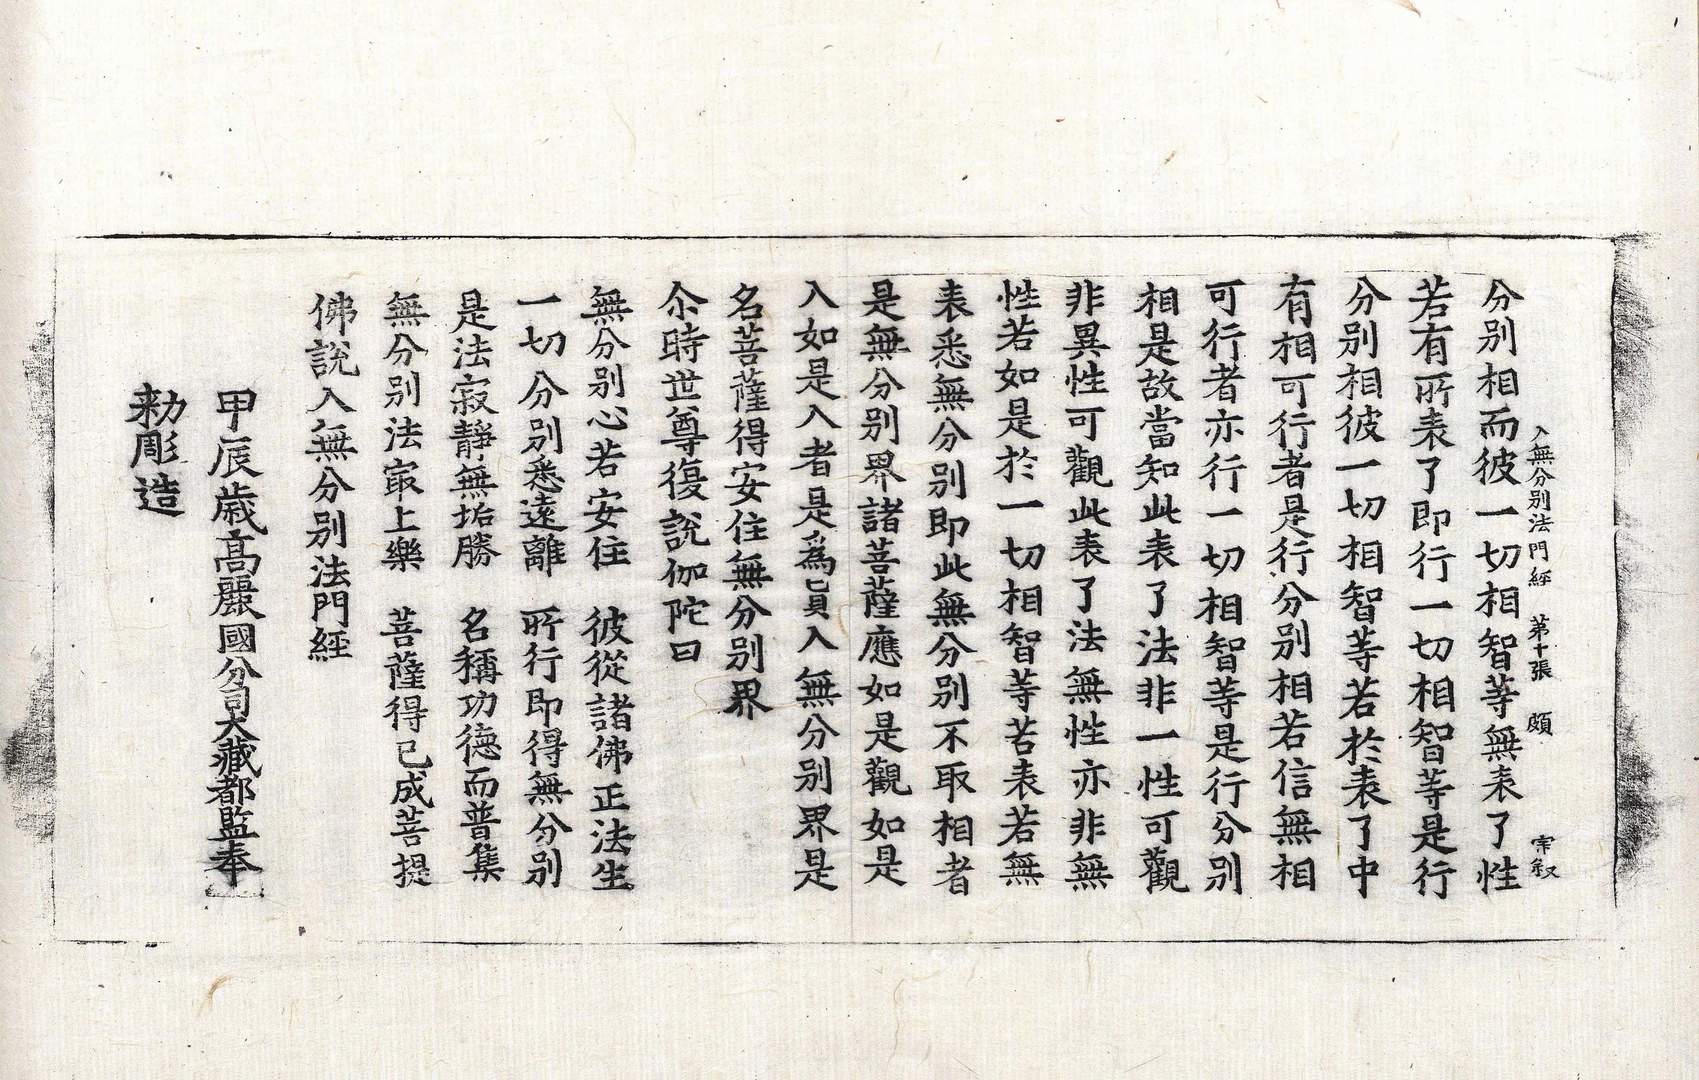 入無分別法門經 第十張 頗 宗叙
分別相而彼一切相智等無表了性
若有所表了即行一切相智等是行
分別相彼一切相智等若於表了中
有相可行者是行分別相若信無相
可行者亦行一切相智等是行分別
相是故當知此表了法非一性可觀
非異性可觀此表了法無性亦非無
性若如是於一切相智等若表若無
表悉無分別即此無分別不取相者
是無分別界諸菩薩應如是觀如是
入如是入者是爲眞入無分別界是
名菩薩得安住無分別界
尒時世尊復說伽陀曰
無分別心若安住 彼從諸佛正法生
一切分別悉遠離 所行即得無分別
是法寂靜無垢勝 名稱功德而普集
無分別法㝡上樂 菩薩得已成菩提
佛說入無分別法門経
甲辰歲高麗國分司大藏都監奉
勅彫造